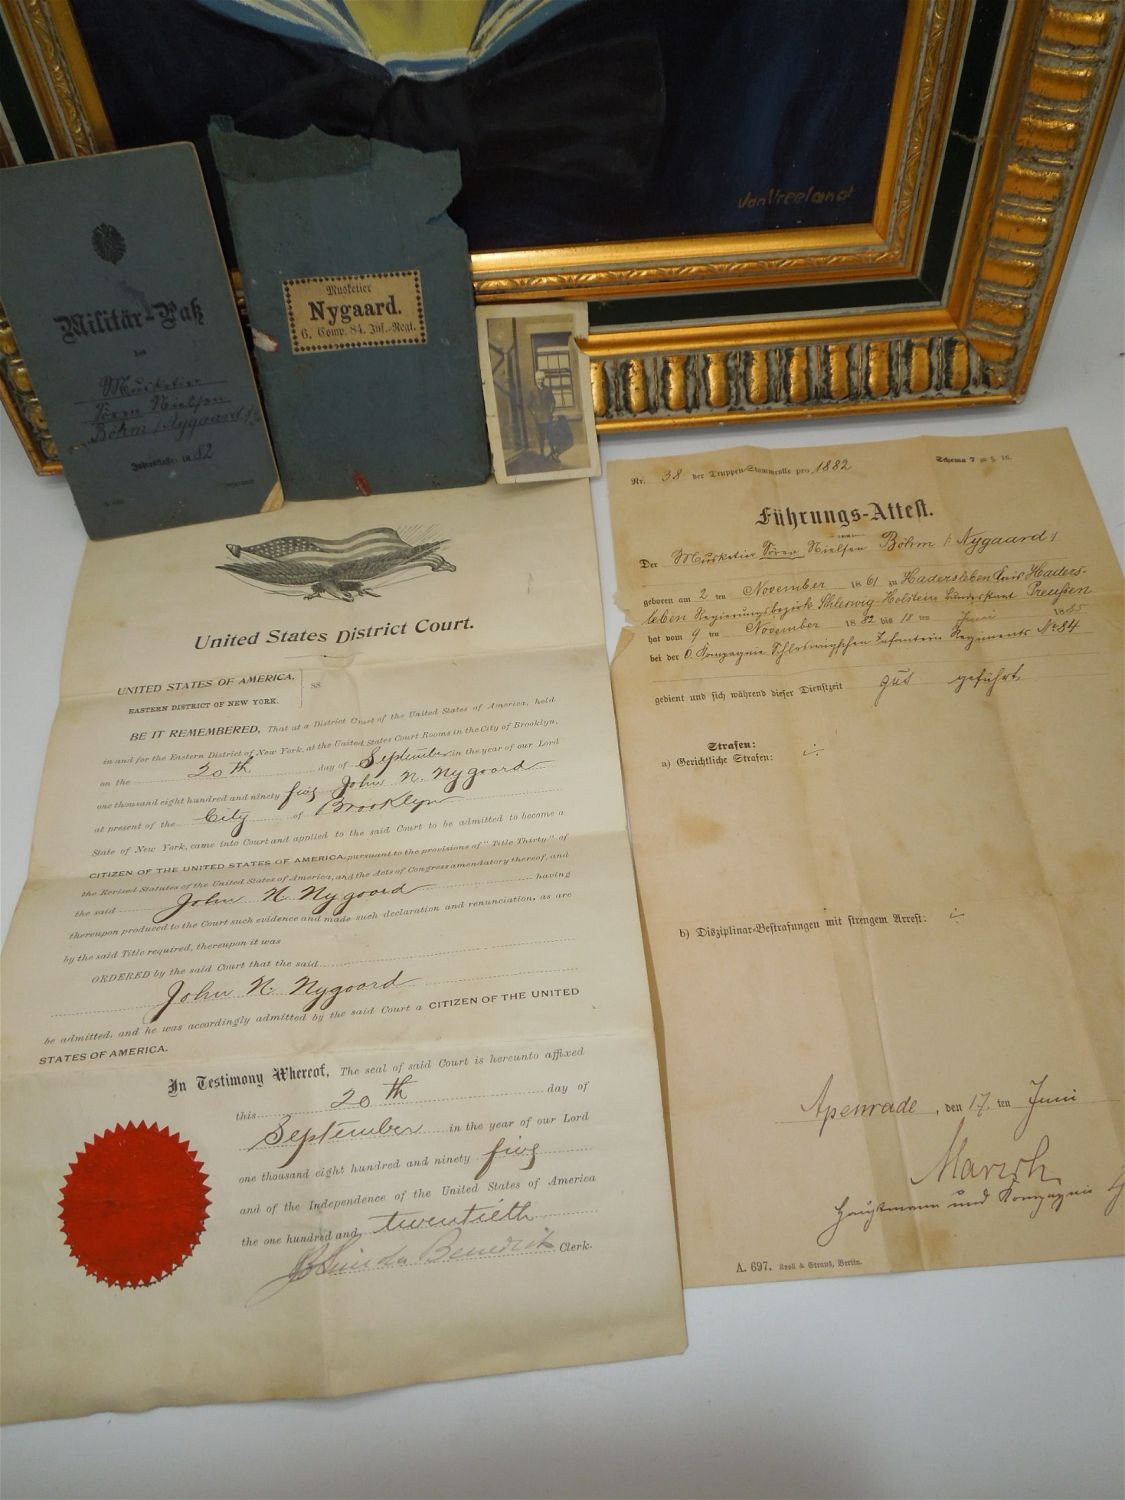 VanVreeland
Militär-Paß
des
Musketier
Sören Nielsen
Böhm / Nygaard /
Jahresklasse: 1882
Musketier
Nygaard.
6. Comp. 84. Inf.-Regt.
United States District Court.
UNITED STATES OF AMERICA,
EASTERN DISTRICT OF NEW YORK.
ss
BE IT REMEMBERED, That at a District Court of the United States of America, held
in and for the Eastern District of New York, at the United States Court Rooms in the City of Brooklyn,
on the 20th day of September in the year of our Lord
one thousand eight hundred and ninety five John N. Nygoord
at present of the City of Brooklyn
State of New York, came into Court and applied to the said Court to be admitted to become a
CITIZEN OF THE UNITED STATES OF AMERICA, pursuant to the provisions of "Title Thirty" of
the Revised Statutes of the United States of America, and the Acts of Congress amendatory thereof, and
the said John N. Nygoord having
thereupon produced to the Court such evidence and made such declaration and renunciation, as are
by the said Title required, thereupon it was
ORDERED by the said Court that the said
John N. Nygoord
be admitted, and he was accordingly admitted by the said Court a CITIZEN OF THE UNITED
STATES OF AMERICA.
In Testimony Whereof, The seal of said Court is hereunto affixed
this 20th day of
September in the year of our Lord
one thousand eight hundred and ninety five
and of the Independence of the United States of America
the one hundred and twentieth
Benedict Clerk.
Nr. 38 der Truppen-Stammrolle pro 1882
Schema 7 zu § 16.
Führungs-Attest.
Der Musketier Sören Nielsen Böhm / Nygaard /
geboren am 2 ten November 1861 zu Hadersleben Kreis Haders-
leben Regierungsbezirk Schleswig-Holstein Bundesstaat Preußen
hat vom 9 ten November 1882 bis 18 ten Juni 1885
bei der 6. Kompagnie Schleswigschen Infanterie Regiments No 84
gedient und sich während dieser Dienstzeit gut geführt.
Strafen:
a) Gerichtliche Strafen: ÷
b) Disziplinar-Bestrafungen mit strengem Arrest: ÷
Apenrade, den 17. ten Juni
Hauptmann und Kompagnie
A. 697. Berlin.